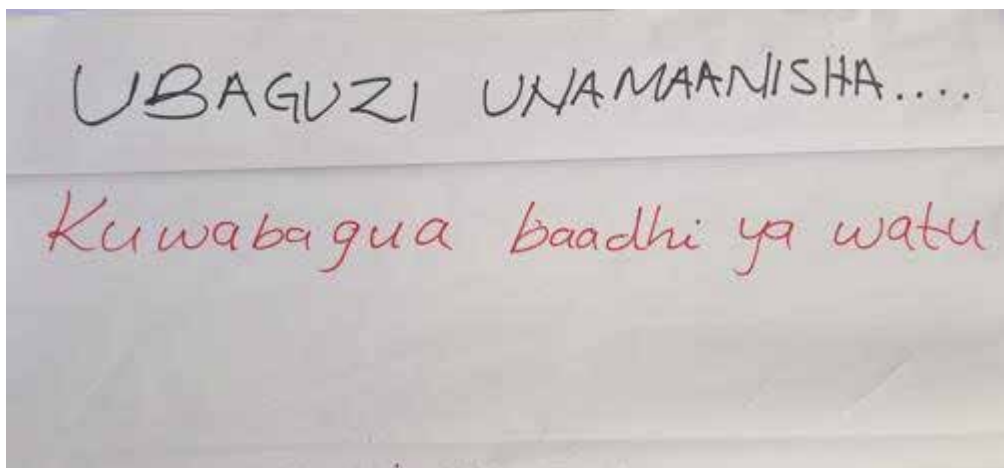 UBAGUZI UNAMAANISHA....
Kuwabagua baadhi ya watu